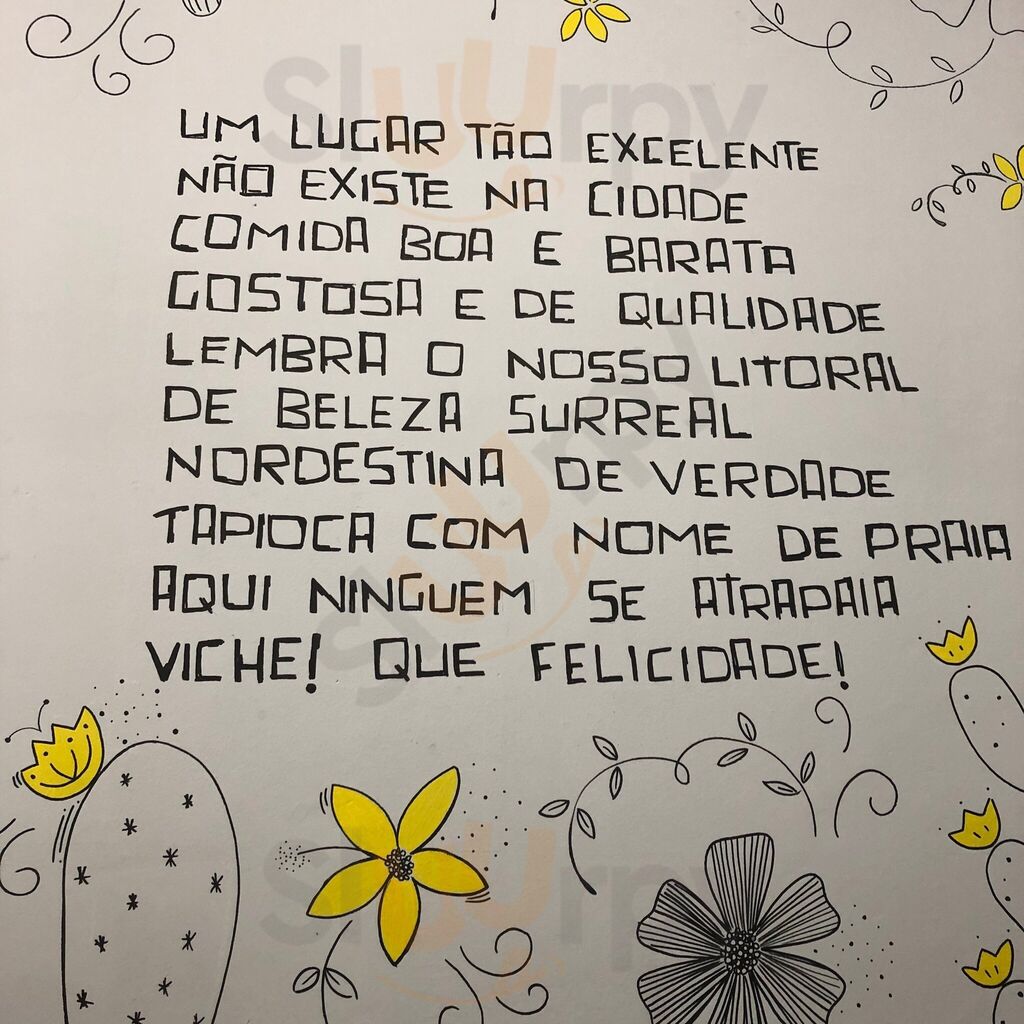 UM LUGAR TÃO EXCELENTE
NÃO EXISTE NA CIDADE
COMIDA BOA E BARATA
GOSTOSA E DE QUALIDADE
LEMBRA O NOSSO LITORAL
DE BELEZA SURREAL
NORDESTINA DE VERDADE
TAPIOCA COM NOME DE PRAIA
AQUI NINGUEM SE ATRAPAIA
VICHE! QUE FELICIDADE!
Sluurpy
Sluurpy
Sluurpy